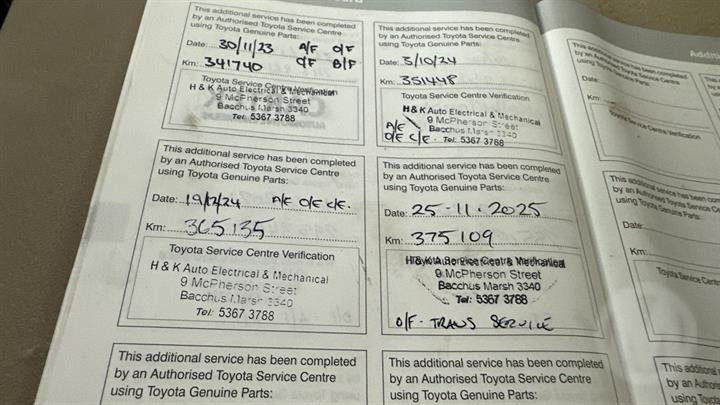 This additional service has been completed
by an Authorised Toyota Service Centre
using Toyota Genuine Parts:
Date: 30/11/23 A/F O/F
Km: 341740 B/F
Toyota Service Centre Verification
H & K Auto Electrical & Mechanical
9 McPherson Street
Bacchus Marsh 3340
Tel: 5367 3788
This additional service has been completed
by an Authorised Toyota Service Centre
using Toyota Genuine Parts:
Date: 3/10/24
Km: 351448
Toyota Service Centre Verification
H & K Auto Electrical & Mechanical
9 McPherson Street
Bacchus Marsh 3340
Tel: 5367 3788
This additional service has been completed
by an Authorised Toyota Service Centre
using Toyota Genuine Parts:
Date: 19/12/24
Km: 365135
Toyota Service Centre Verification
H & K Auto Electrical & Mechanical
9 McPherson Street
Bacchus Marsh 3340
Tel: 5367 3788
This additional service has been completed
by an Authorised Toyota Service Centre
using Toyota Genuine Parts:
Date: 25-11-2025
Km: 375109
9 McPherson Street
Bacchus Marsh 3340
Tel: 5367 3788
O/F - TRANS SERVICE
This additional service has been completed
by an Authorised Toyota Service Centre
using Toyota Genuine Parts:
This additional service has been completed
by an Authorised Toyota Service Centre
using Toyota Genuine Parts:
This additional service has been completed
by an Authorised Toyota Service Centre
using Toyota Genuine Parts:
Date:
Km:
Toyota Service Centre Verification
Date:
Km:
Toyota Service
This additional
by an Author
using Toyota